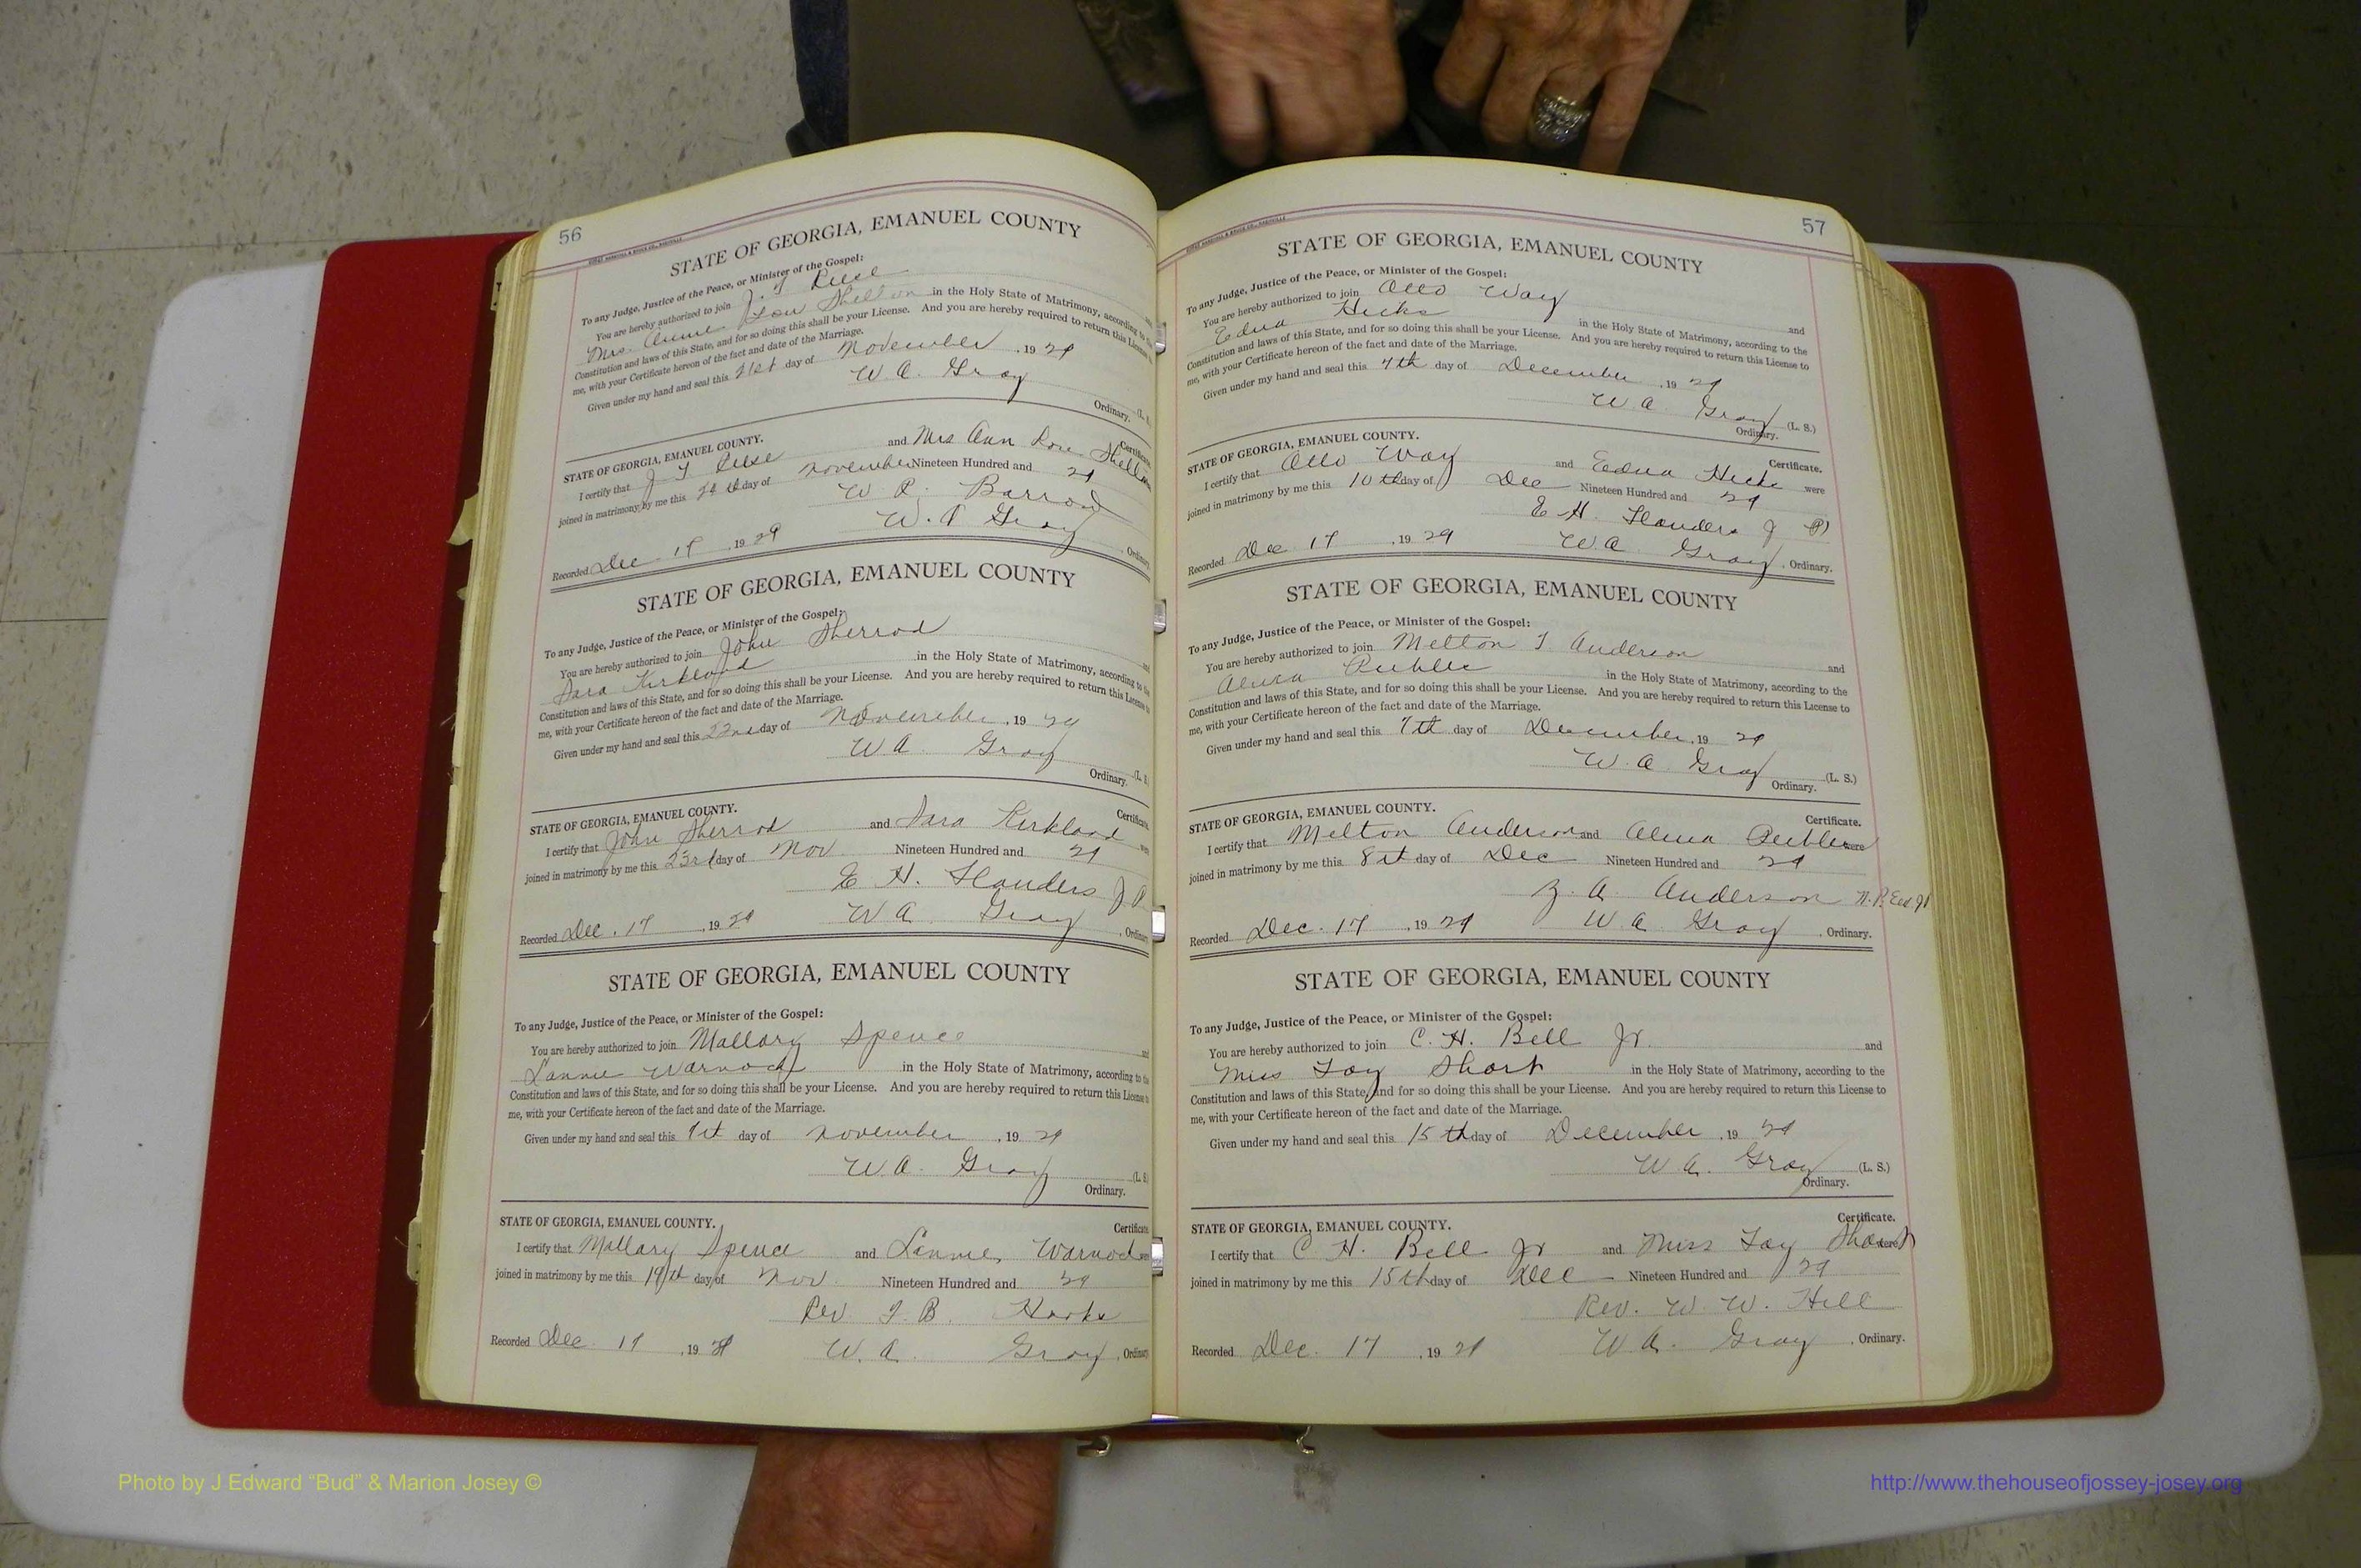 56
STATE OF GEORGIA, EMANUEL COUNTY
To any Judge, Justice of the Peace, or Minister of the Gospel:
You are hereby authorized to join J. T Reese and
Mrs. Annie Lou Shelton in the Holy State of Matrimony, according to the
Constitution and laws of this State, and for so doing this shall be your License. And you are hereby required to return this License to
me, with your Certificate hereon of the fact and date of the Marriage.
Given under my hand and seal this 21st day of November, 19 29
W. A. Gray (L. S.)
Ordinary.
STATE OF GEORGIA, EMANUEL COUNTY. Certificate.
I certify that J T Reese and Mrs Ann Lou Shelton
joined in matrimony by me this day of November Nineteen Hundred and 29
W. R.
W. A Gray, Ordinary
Recorded Dec 17, 19 29
STATE OF GEORGIA, EMANUEL COUNTY
To any Judge, Justice of the Peace, or Minister of the Gospel:
You are hereby authorized to join John Sherrod and
Sara Kirkland in the Holy State of Matrimony, according to the
Constitution and laws of this State, and for so doing this shall be your License. And you are hereby required to return this License to
me, with your Certificate hereon of the fact and date of the Marriage.
Given under my hand and seal this 22nd day of November, 19 29
W A. Gray (L. S.)
Ordinary.
STATE OF GEORGIA, EMANUEL COUNTY. Certificate.
I certify that John Sherrod and Sara Kirkland were
joined in matrimony by me this 23rd day of Nov Nineteen Hundred and 29
E H. Flanders J. P.
Recorded Dec. 17, 19 29 W A. Gray, Ordinary
STATE OF GEORGIA, EMANUEL COUNTY
To any Judge, Justice of the Peace, or Minister of the Gospel:
You are hereby authorized to join Mallary Spence and
Lannie Warnock in the Holy State of Matrimony, according to the
Constitution and laws of this State, and for so doing this shall be your License. And you are hereby required to return this License to
me, with your Certificate hereon of the fact and date of the Marriage.
Given under my hand and seal this day of November, 19 29
W. A. Gray (L. S.)
Ordinary.
STATE OF GEORGIA, EMANUEL COUNTY. Certificate
I certify that Mallary Spence and Lannie Warnock were
joined in matrimony by me this 19th day of Nov. Nineteen Hundred and 29
Rev. B.
Recorded Dec. 17, 19 29 W. A. Gray, Ordinary
57
STATE OF GEORGIA, EMANUEL COUNTY
To any Judge, Justice of the Peace, or Minister of the Gospel:
You are hereby authorized to join Otto Way and
Edna Hicks in the Holy State of Matrimony, according to the
Constitution and laws of this State, and for so doing this shall be your License. And you are hereby required to return this License to
me, with your Certificate hereon of the fact and date of the Marriage.
Given under my hand and seal this 7th day of December, 19 29
W. A. Gray (L. S.)
Ordinary.
STATE OF GEORGIA, EMANUEL COUNTY. Certificate.
I certify that Otto Way and Eedna Hicks were
joined in matrimony by me this 10th day of Dec Nineteen Hundred and 29
E H. Flanders J P
Recorded Dec 17, 19 29 W. A. Gray, Ordinary.
STATE OF GEORGIA, EMANUEL COUNTY
To any Judge, Justice of the Peace, or Minister of the Gospel:
You are hereby authorized to join Melton T Anderson and
Alma Peebles in the Holy State of Matrimony, according to the
Constitution and laws of this State, and for so doing this shall be your License. And you are hereby required to return this License to
me, with your Certificate hereon of the fact and date of the Marriage.
Given under my hand and seal this 7th day of December, 19 29
W. A. Gray (L. S.)
Ordinary.
STATE OF GEORGIA, EMANUEL COUNTY. Certificate.
I certify that Melton Anderson and Alma Peebles were
joined in matrimony by me this 8th day of Dec Nineteen Hundred and 29
A. Anderson N.P.
Recorded Dec. 17, 19 29 W A Gray, Ordinary.
STATE OF GEORGIA, EMANUEL COUNTY
To any Judge, Justice of the Peace, or Minister of the Gospel:
You are hereby authorized to join C. H. Bell Jr. and
Miss Foy Short in the Holy State of Matrimony, according to the
Constitution and laws of this State, and for so doing this shall be your License. And you are hereby required to return this License to
me, with your Certificate hereon of the fact and date of the Marriage.
Given under my hand and seal this 15th day of December, 19 29
W A. Gray (L. S.)
Ordinary.
STATE OF GEORGIA, EMANUEL COUNTY. Certificate.
I certify that C H. Bell Jr and Miss Foy Short were
joined in matrimony by me this 15th day of Dec Nineteen Hundred and 29
Rev. W. W. Hill
Recorded Dec. 17, 19 29 W A. Gray, Ordinary.
Photo by J Edward “Bud” & Marion Josey ©
http://www.thehouseofjossey-josey.org